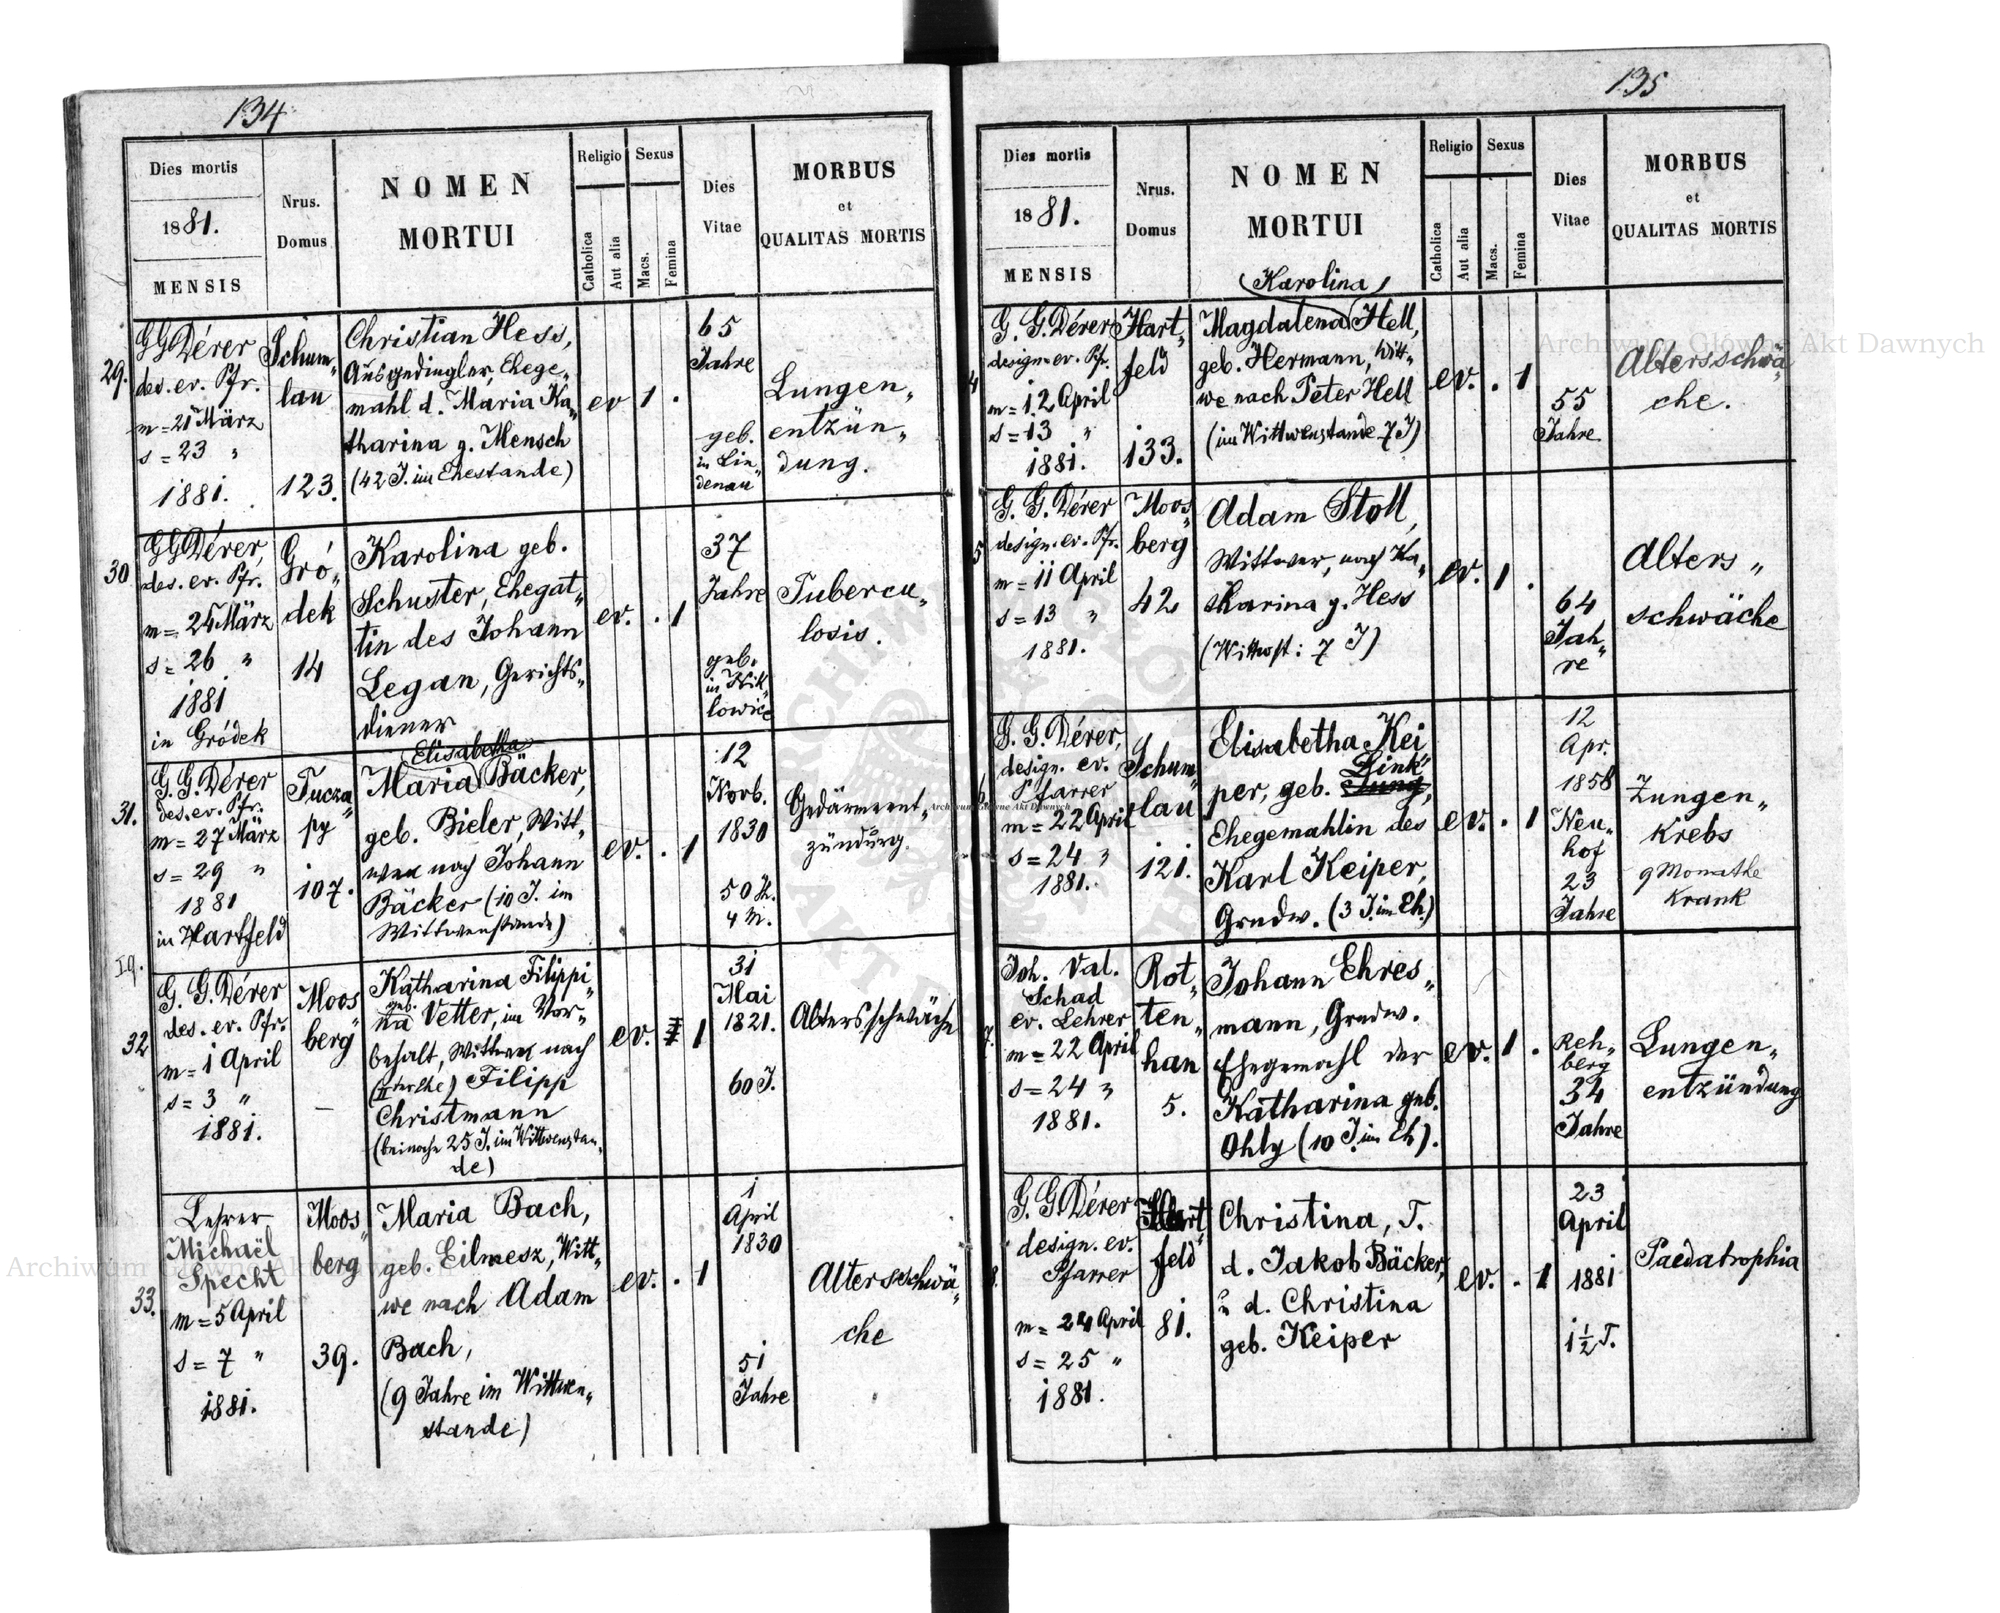 134
Dies mortis
1881.
MENSIS
Nrus.
Domus
NOMEN
MORTUI
Religio
Catholica
Aut alia
Sexus
Macs.
Femina
Dies
Vitae
MORBUS
et
QUALITAS MORTIS
29.
G G Dérer
des. ev. Pfr.
m = 21 März
s = 23 "
1881.
Schum„
lau
123.
Christian Hess,
Ausgedingler, Ehege„
mahl d. Maria Ka„
tharina g. Mensch
(42 J. im Ehestande)
ev
1
.
65
Jahre
geb.
in Lin„
denau
Lungen„
entzün„
dung.
30
G G Dérer,
des. ev. Pfr.
m = 24 März
s = 26 "
1881
in Gródek
Gró„
dek
14
Karolina geb.
Schuster, Ehegat„
tin des Johann
Legan, Gerichts„
diener
ev.
. 1
37
Jahre
geb.
lowice
Tubercu„
losis.
31.
G. G. Dérer
des. ev. Pfr.
m = 27 März
s = 29 "
1881
in Hartfeld
Tucza„
py
107.
Elisabetha
Maria Bäcker,
geb. Bieler, Witt„
we nach Johann
Bäcker (10 J. im
Wittwenstande)
ev.
. 1
12
Novb.
1830
50 J.
4 M.
Gedärment„
zündung.
I9.
32
G. G. Dérer
des. ev. Pfr.
m = 1 April
s = 3 "
1881.
Moos„
berg
—
Katharina Filippi„
na geb. Vetter, im Vor„
behalt, Wittwe nach
Filipp
Christmann
(beinahe 25 J. im Wittwenstan„
de)
ev.
1
31
Mai
1821.
60 J.
Altersschwäche
33.
Lehrer
Michaël
Specht
m = 5 April
s = 7 "
1881.
Moos„
berg
39.
Maria Bach,
geb. Eilmesz, Witt„
we nach Adam
Bach,
(9 Jahre im Wittwen„
stande)
ev.
. 1
1
April
1830
51
Jahre
Altersschwä„
che
135
Dies mortis
1881.
MENSIS
Nrus.
Domus
NOMEN
MORTUI
Religio
Catholica
Aut alia
Sexus
Macs.
Femina
Dies
Vitae
MORBUS
et
QUALITAS MORTIS
4
G. G. Dérer
design. ev. Pfr.
m = 12 April
s = 13 "
1881.
Hart„
feld
133.
Karolina
Magdalena Hell,
geb. Hermann, Witt„
we nach Peter Hell
(im Wittwenstande 7 J)
ev.
. 1
55
Jahre
Altersschwä„
che.
5
G. G. Dérer
design. ev. Pfr.
m = 11 April
s = 13 "
1881.
Moos„
berg
42
Adam Stoll,
Wittwer, nach Ka„
tharina g. Hess
(Wittwst: 7 J)
ev.
1 .
64
Jah„
re
Alters„
schwäche
G. G. Dérer,
design. ev.
Pfarrer
m = 22 April
s = 24 "
1881.
Schum„
lau
121.
Elisabetha Kei„
per, geb. Link
Ehegemahlin des
Karl Keiper,
Grndw. (3 J. im Eh.)
ev.
. 1
12
Apr.
1858
Neu„
hof
23
Jahre
Zungen„
krebs
9 Monathe
krank
7.
Joh. Val.
Schad
ev. Lehrer
m = 22 April
s = 24 "
1881.
Rot„
ten„
han
5.
Johann Ehres„
mann, Grndw.
Ehegemahl der
Katharina geb.
Ohly (10 J. im Eh).
ev.
1 .
Reh„
berg
34
Jahre
Lungen„
entzündung
8.
G. G. Dérer
design. ev.
Pfarrer
m = 24 April
s = 25 "
1881.
Hart„
feld
81.
Christina, T.
d. Jakob Bäcker,
u d. Christina
geb. Keiper
ev.
. 1
23
April
1881
1 1/2 T.
Paedatrophia
Archiwum Główne Akt Dawnych
Archiwum Główne Akt Dawnych
Archiwum Główne Akt Dawnych